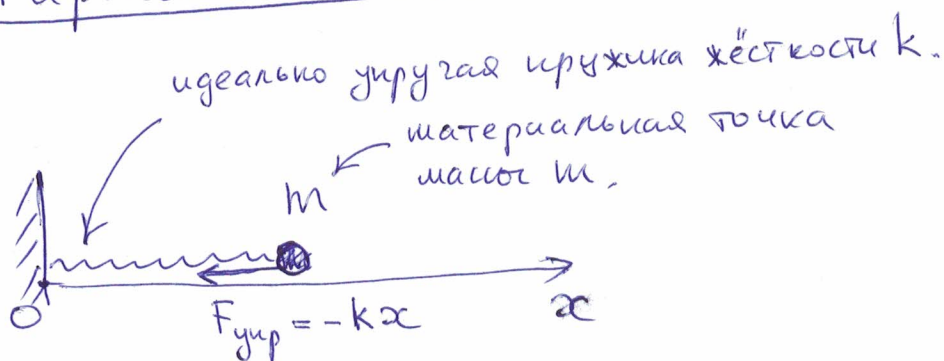 идеально упругая пружина жёсткости k.
материальная точка
массы m.
m
O
Fупр = -kx
x